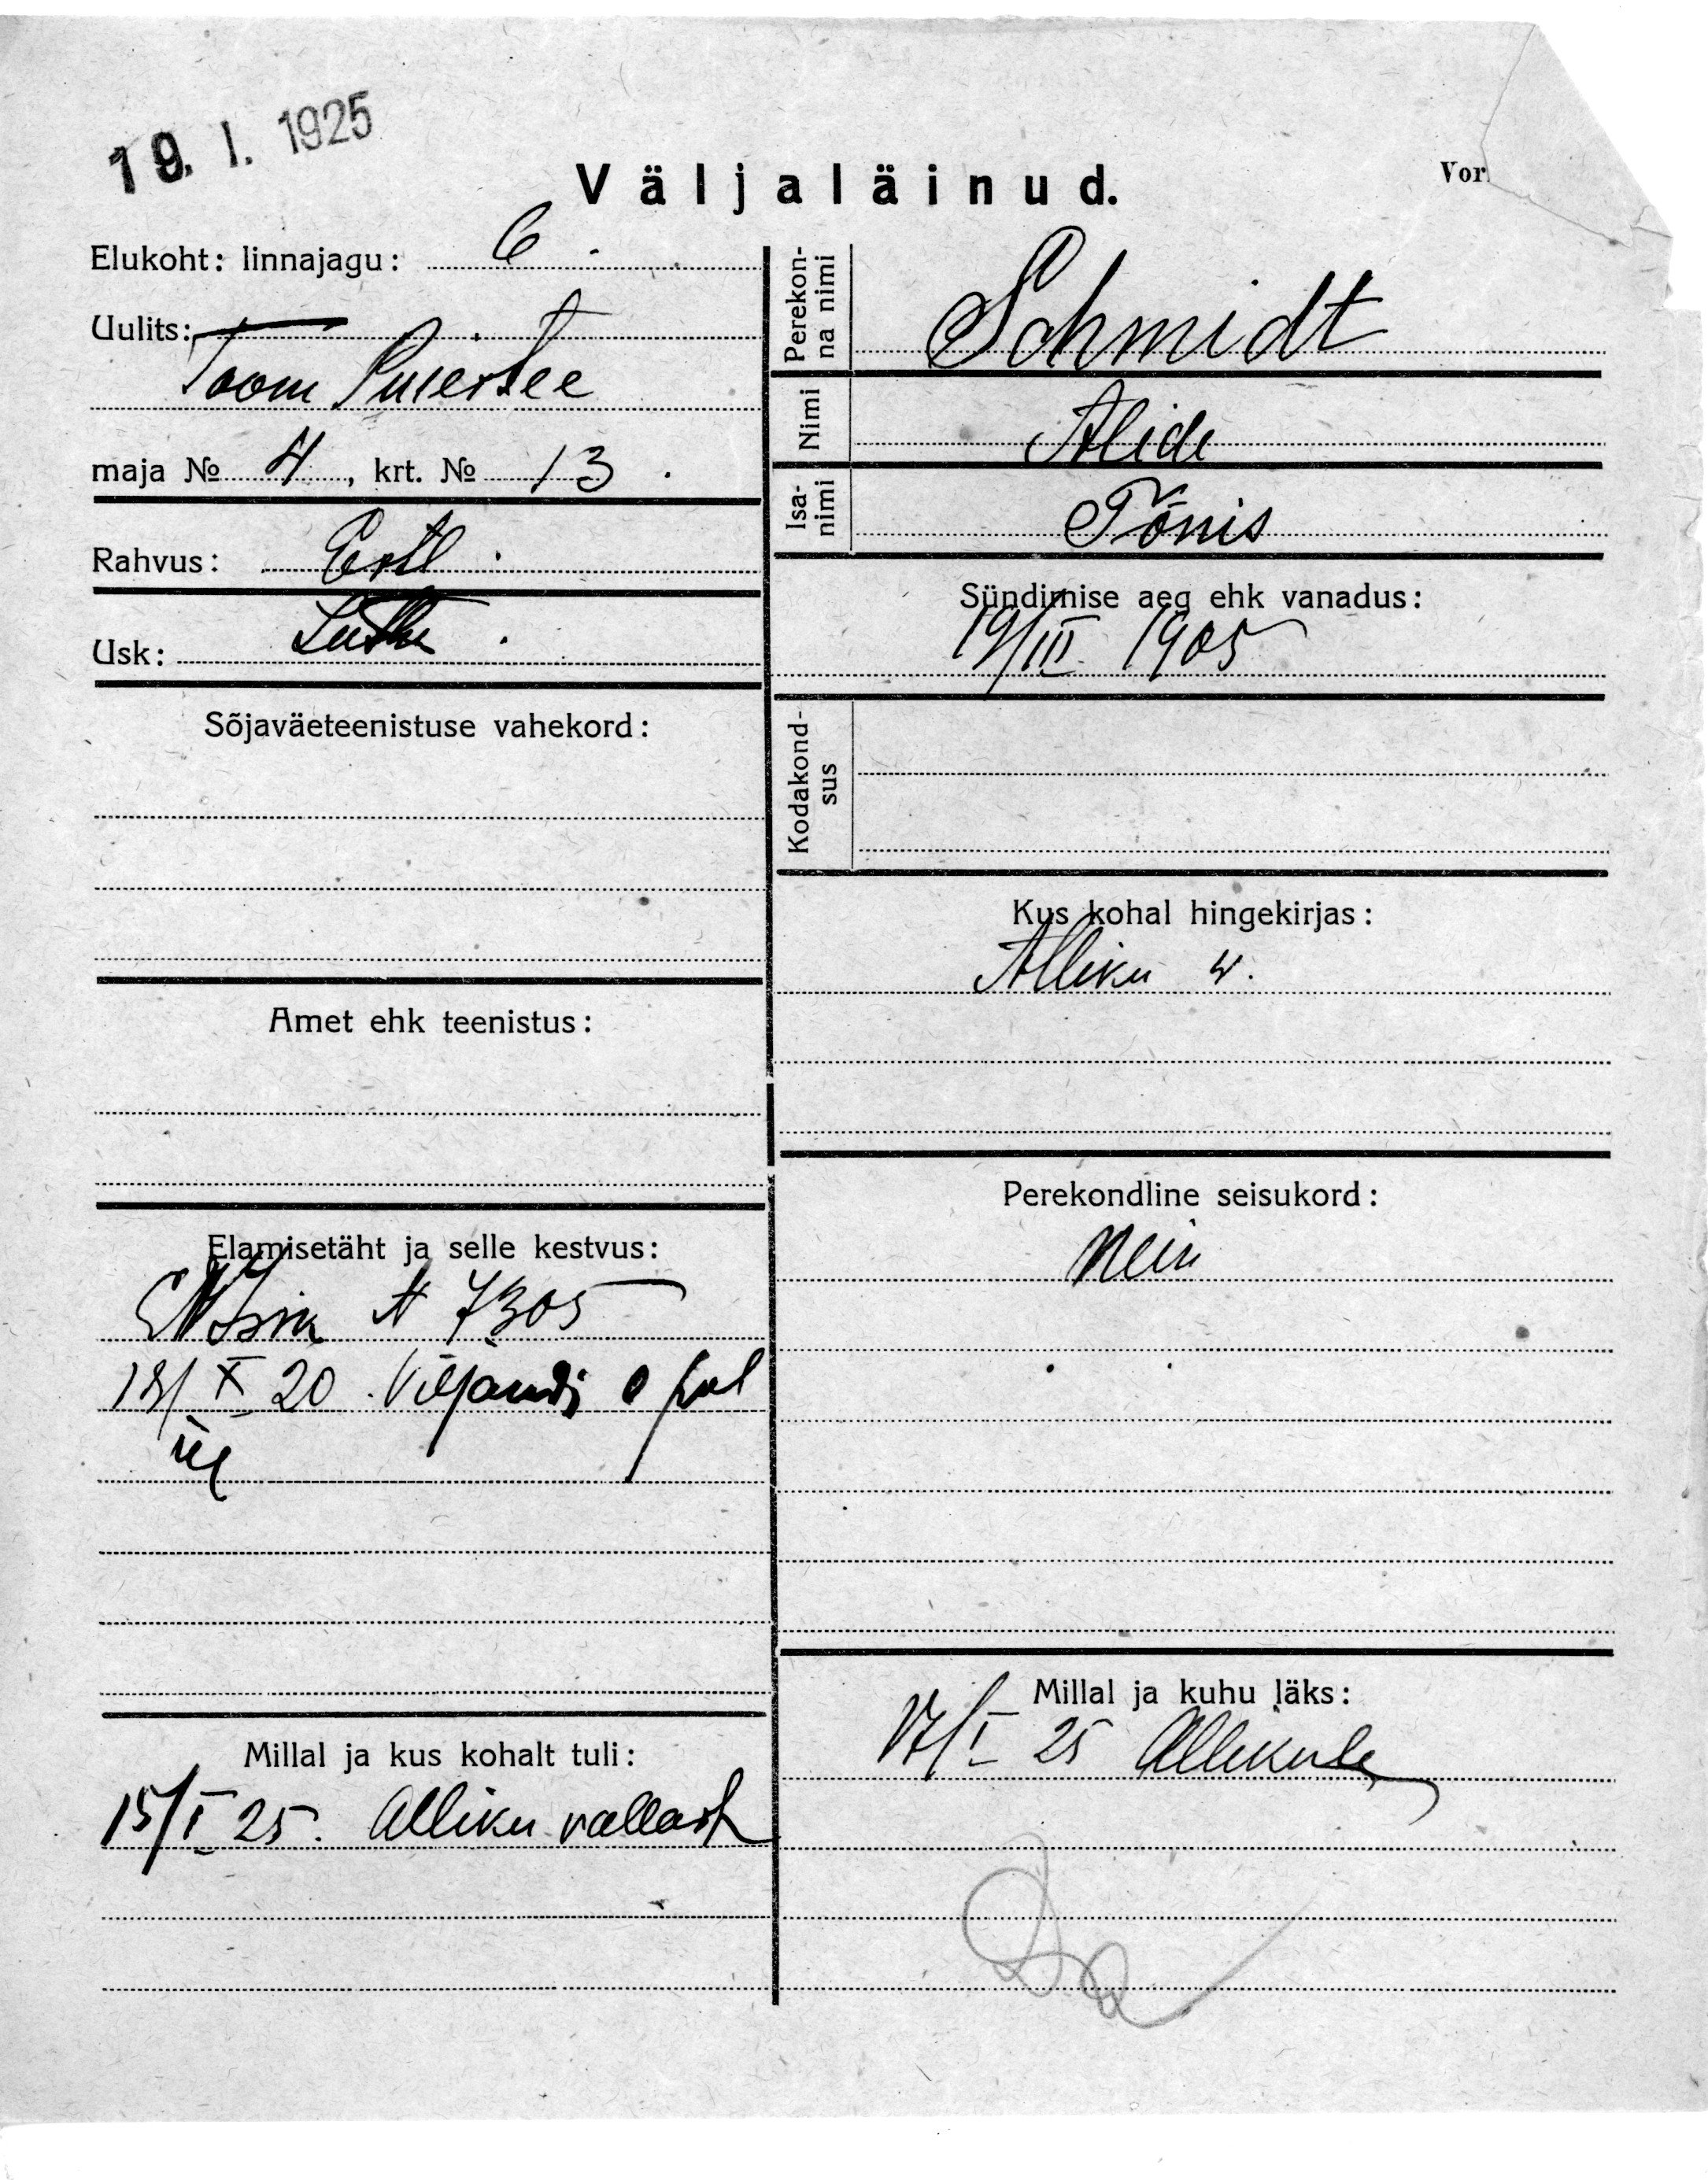 19. I. 1925
Väljaläinud.
Vor
Elukoht: linnajagu: 6.
Uulits:
Toom Puiestee
maja № 4, krt. № 13.
Rahvus: Eestl.
Usk: Luthe.
Sõjaväeteenistuse vahekord:
Amet ehk teenistus:
Elamisetäht ja selle kestvus:
N 7305
18/X 20. Viljandi pol
ül
Millal ja kus kohalt tuli:
15/I 25. Alliku vallast
Perekonna nimi
Schmidt
Nimi
Alide
Isanimi
Tõnis
Sündimise aeg ehk vanadus:
19/III 1905
Kodakondsus
Kus kohal hingekirjas:
Alliku v.
Perekondline seisukord:
Neiu
Millal ja kuhu läks:
17/I 25 Allikule